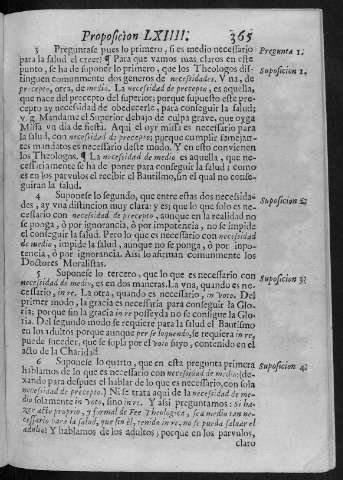 Proposicion LXIIII. 365
3 Preguntase pues lo primero, si es medio necessario
para la salud el creer? ¶ Para que vamos mas claros en este
punto, se ha de suponer lo primero, que los Theologos dis-
tinguen comunmente dos generos de necessidades. Vna, de
precepto, otra, de medio. La necessidad de precepto, es aquella,
que nace del precepto del superior; porque supuesto esse pre-
cepto ay necessidad de obedecerle, para conseguir la salud;
v. g. Mandame el Superior debajo de culpa grave, que oyga
Missa vn dia de fiesta. Aqui el oyr missa es necessario para
la salud, con necesidad de precepto; porque cumplir semejan-
tes mandatos es necessario deste modo. Y en esto convienen
los Theologos. ¶ La necesidad de medio es aquella, que ne-
cessariamente se ha de poner para conseguir la salud; como
es en los parvulos el recibir el Bautismo, sin el qual no conse-
guiran la salud.
4 Suponese lo segundo, que entre estas dos necessida-
des, ay vna distincion muy clara; y es; que lo que solo es ne-
cessario con necesidad de precepto, aunque en la realidad no
se ponga, ò por ignorancia, ò por impotencia, no se impide
el conseguir la salud. Pero lo que es necessario con necesidad
de medio, impide la salud, aunque no se ponga, ò por impo-
tencia, ò por ignorancia. Assi lo afirman comunmente los
Doctores Moralistas.
5 Suponese lo tercero, que lo que es necessario con
necesidad de medio, es en dos maneras. La vna, quando es ne-
cessario, in re. La otra, quando es necessario, in voto. Del
primer modo, la gracia es necessaria para conseguir la Glo-
ria; porque sin la gracia in re posseyda no se configue la Glo-
ria. Del segundo modo se requiere para la salud el Bautismo
en los adultos porque aunque per se loquendo, se requiera in re,
puede suceder, que se supla por el voto suyo, contenido en el
acto de la Charidad.
6 Suponese lo quarto, que en esta pregunta primera
hablamos de lo que es necessario con necesidad de medio; (de-
xando para despues el hablar de lo que es necessario, con sola
necesidad de precepto) Ni se trata aqui de la necesidad de me-
dio solamente in Voto, sino in re. Y assi preguntamos: Si ha-
zer acto proprio, y formal de Fee Theologica, sea medio tan ne-
cessario para la salud, que sin èl, tenido in re, no se pueda salvar el
adulto? Y hablamos de los adultos; porque en los parvulos,
claro
Pregunta 1.
Suposicion 1.
Suposicion 2.
Suposicion 3.
Suposicion 4.